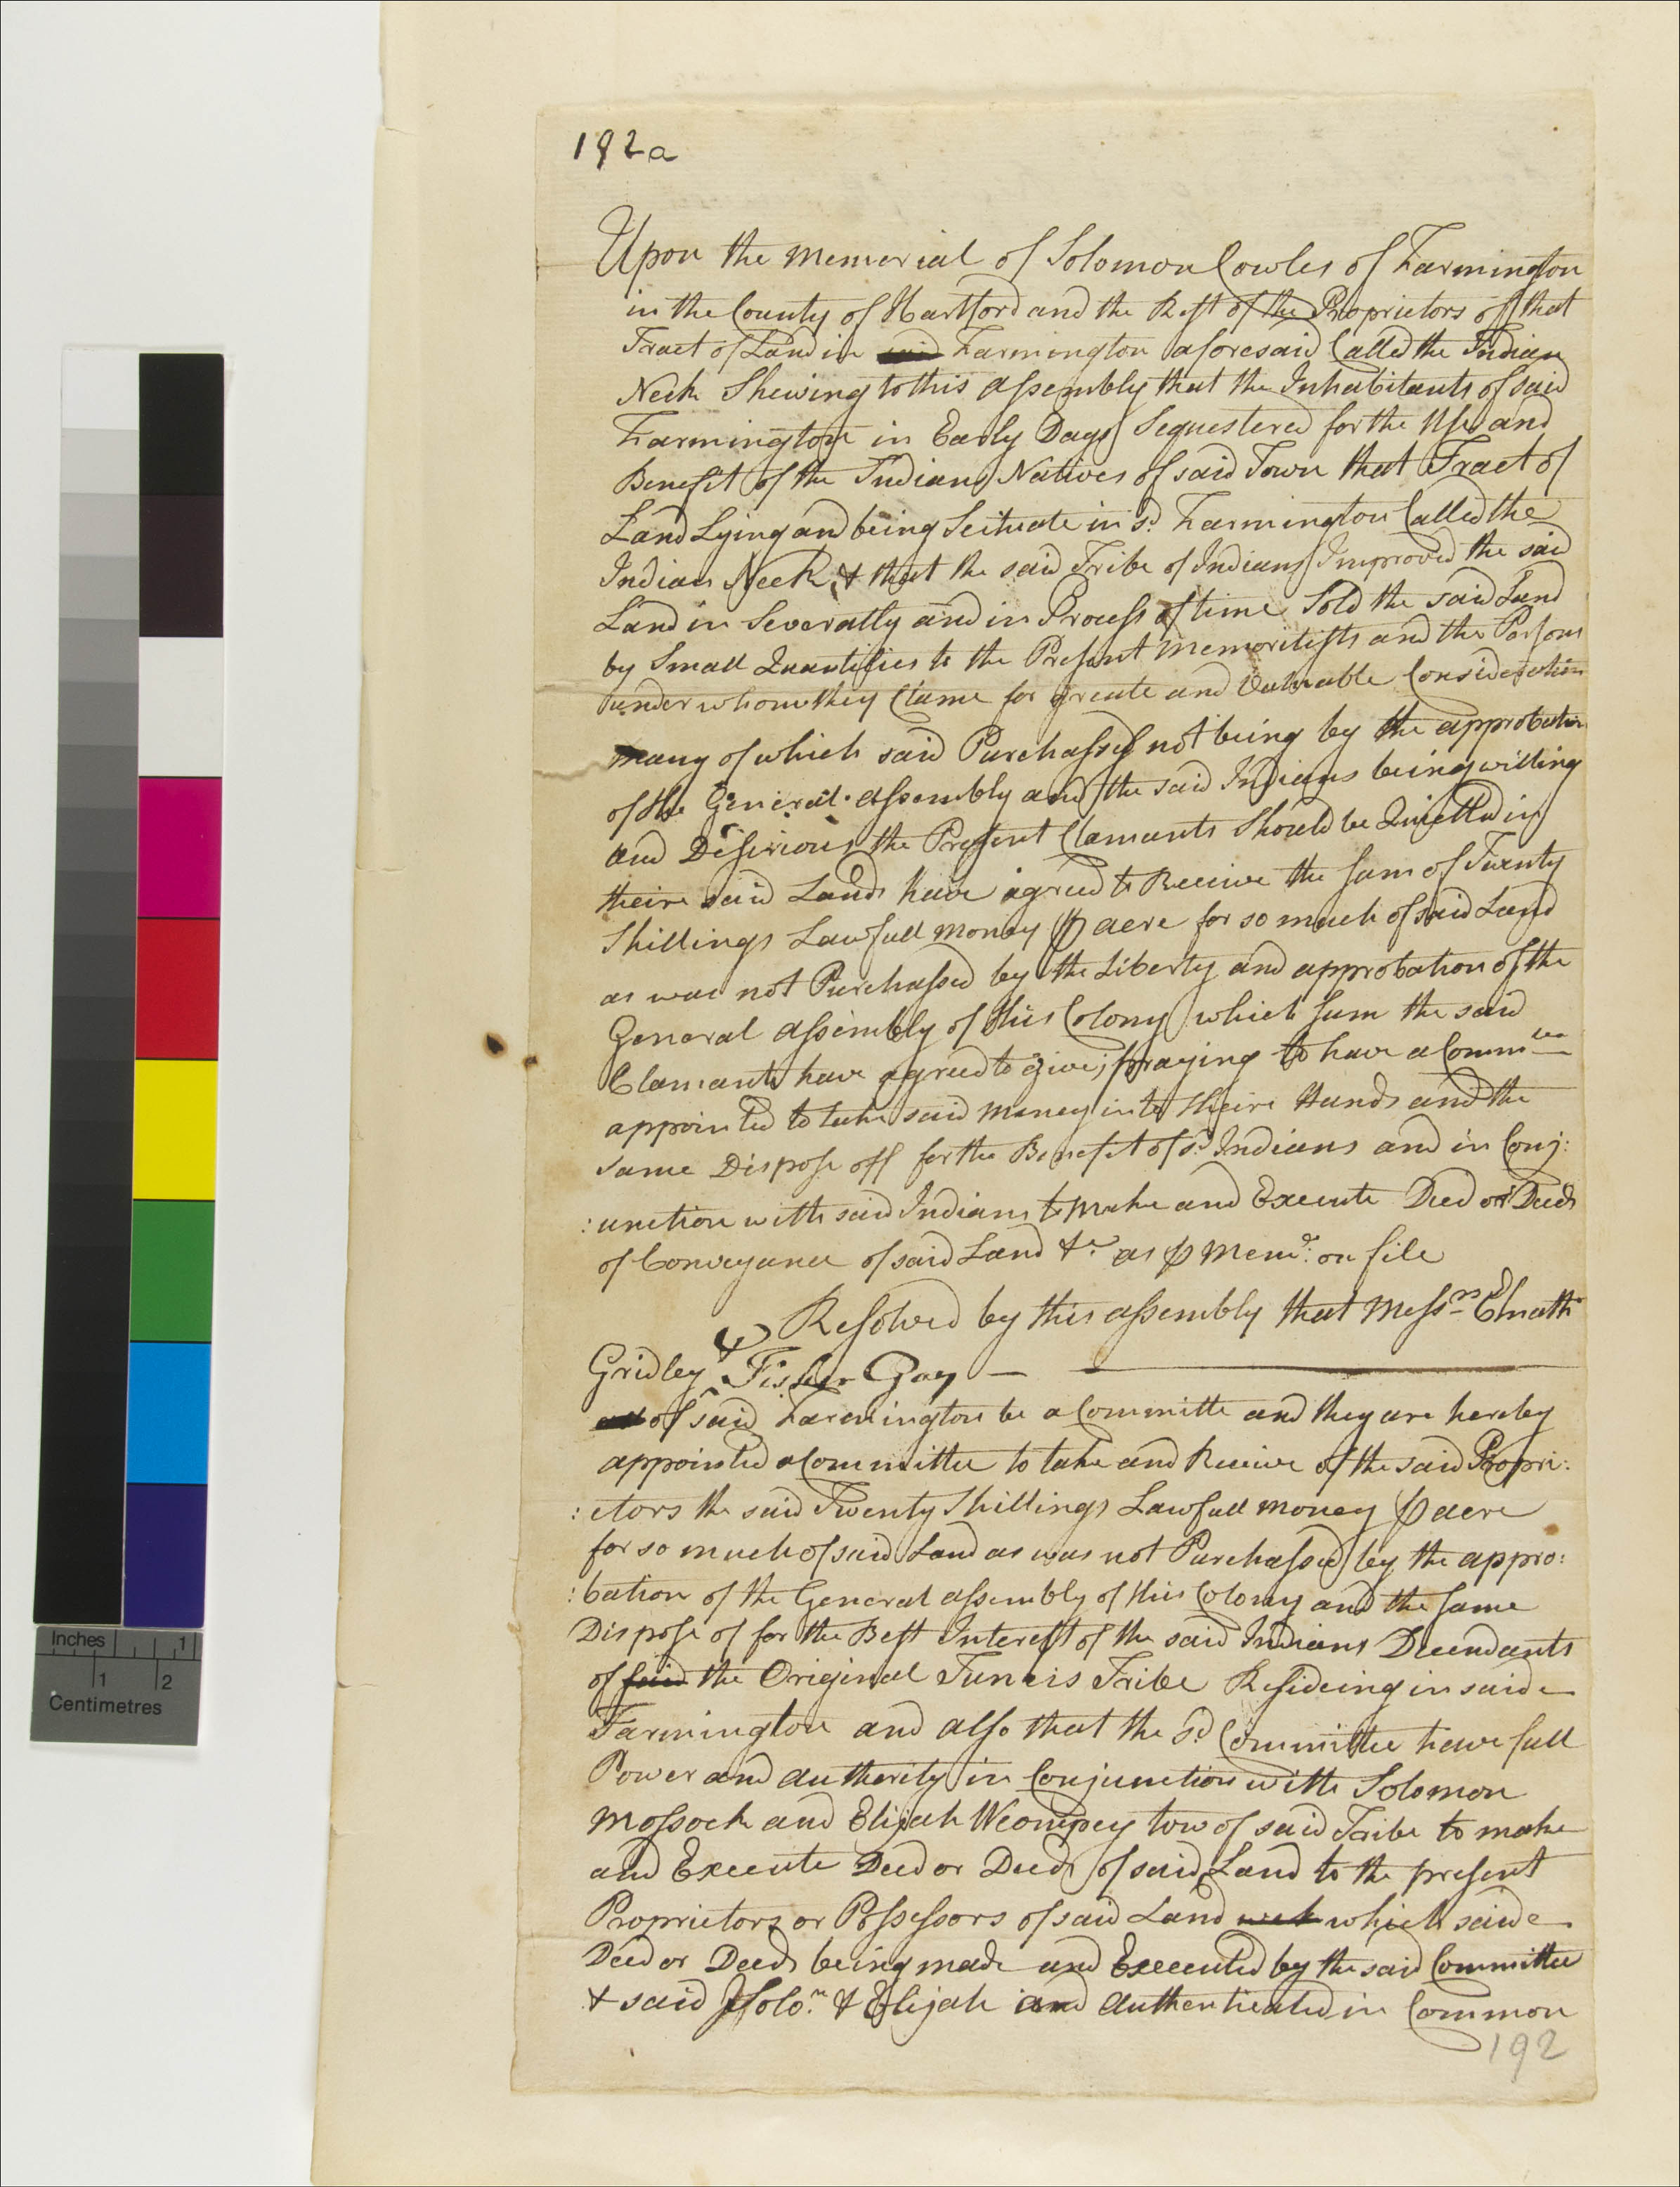 192a
Upon the Memorial of Solomon Cowles of Farmington
in the County of Hartford and the Rest of the Proprietors of that
Tract of Land in said Farmington aforesaid Called the Indian
Neck Shewing to this Assembly that the Inhabitants of said
Farmington in Early Days Sequestered for the Use and
Benefit of the Indians Natives of said Town that Tract of
Land Lying and being Scituate in sd. Farmington Called the
Indian Neck, & that the said Tribe of Indians Improved the said
Land in Severalty and in Process of time Sold the said Land
by Small Quantities to the Present Memorilists and the Persons
under whom they Clame for greate and Valuable Consideration
many of which said Purchasses not being by the approbation
of the General Assembly and the said Indians being willing
and Desirious the Present Clamants Should be Quietted in
theire said Lands have agreed to Receive the sum of Twenty
Shillings Lawfull money ⅌ acre for so much of said Land
as was not Purchassed by the Liberty and approbation of the
General Assembly of this Colony which sum the said
Clamants have agreed to give; praying to have a Commtee
appointed to take said money into theire Hands and the
same Dispose off for the Benefit of sd. Indians and in Conj:
:unction with said Indians to make and Execute Deed or Deeds
of Conveyance of said Land &c. as ⅌ Meml: on file
Resolved by this assembly that Messrs Elnathn
Gridley & Fisher Gay —
of said Farmington be a Committe and they are hereby
appointed a Committee to take and Receive of the said Propri:
:etors the said Twenty Shillings Lawfull money ⅌ acre
for so much of said Land as was not Purchassed by the appro:
:bation of the General assembly of this Colony and the same
Dispose of for the Best Interest of the said Indians Decendants
of said the Original Tunxis Tribe Resideing in said
Farmington and also that the sd. Committee have full
Power and authority in Conjunction with Solomon
Mossock and Elijah Weompey tow of said Tribe to make
and Execute Deed or Deeds of said Land to the present
Proprietors or Possessors of said Land which said
Deed or Deeds being made and Executed by the said Committee
& said Solon. & Elijah and Authenticated in Common
192
Inches 1
1 2
Centimetres